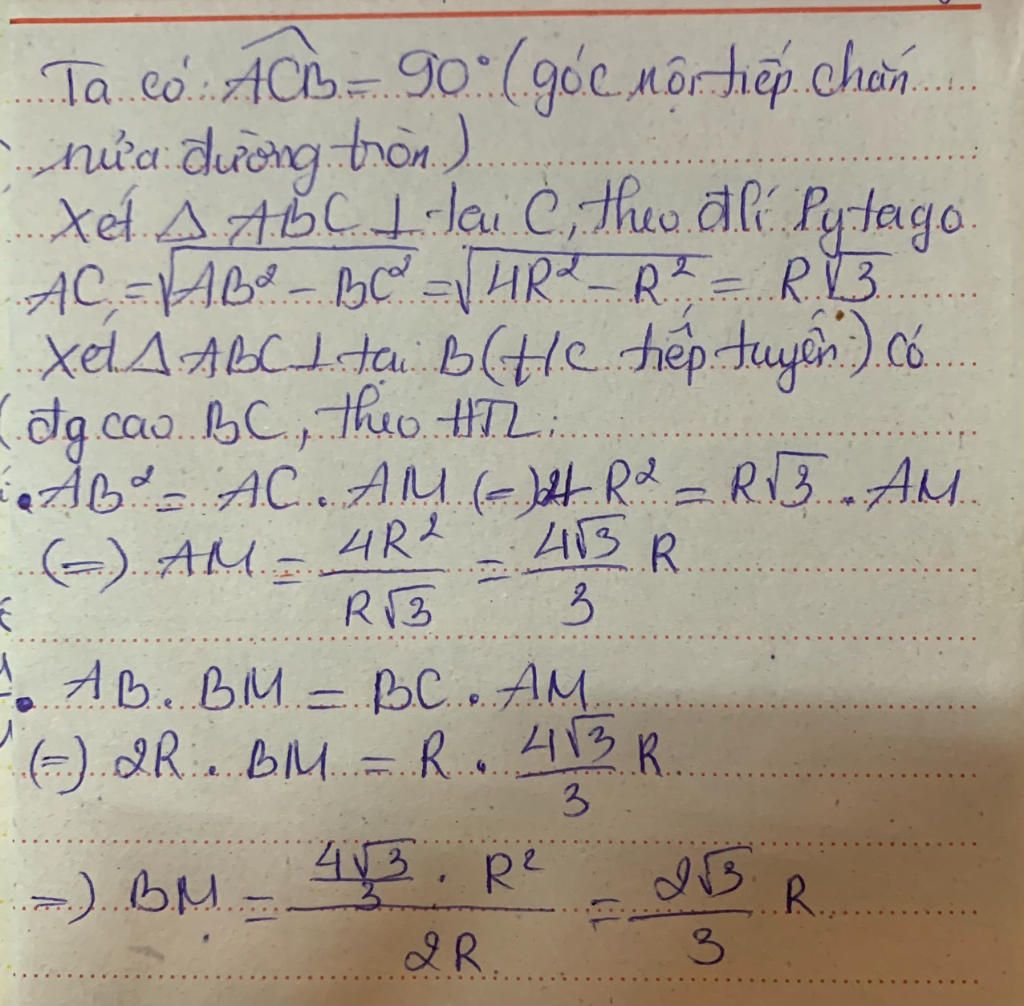 Ta có: ACB = 90° (góc nội tiếp chắn
nửa đường tròn)
Xét Δ ABC ⊥ tại C, theo đlí Pytago
AC = √(AB² − BC²) = √(4R² − R²) = R√3
Xét Δ ABC ⊥ tại B (t/c tiếp tuyến) có
đg cao BC, theo HTL:
• AB² = AC . AM (=) 4R² = R√3 . AM
(=) AM = 4R² / R√3 = 4√3 / 3 R
• AB . BM = BC . AM
(=) 2R . BM = R . 4√3 / 3 R
=) BM = (4√3 / 3 . R²) / 2R = 2√3 / 3 R